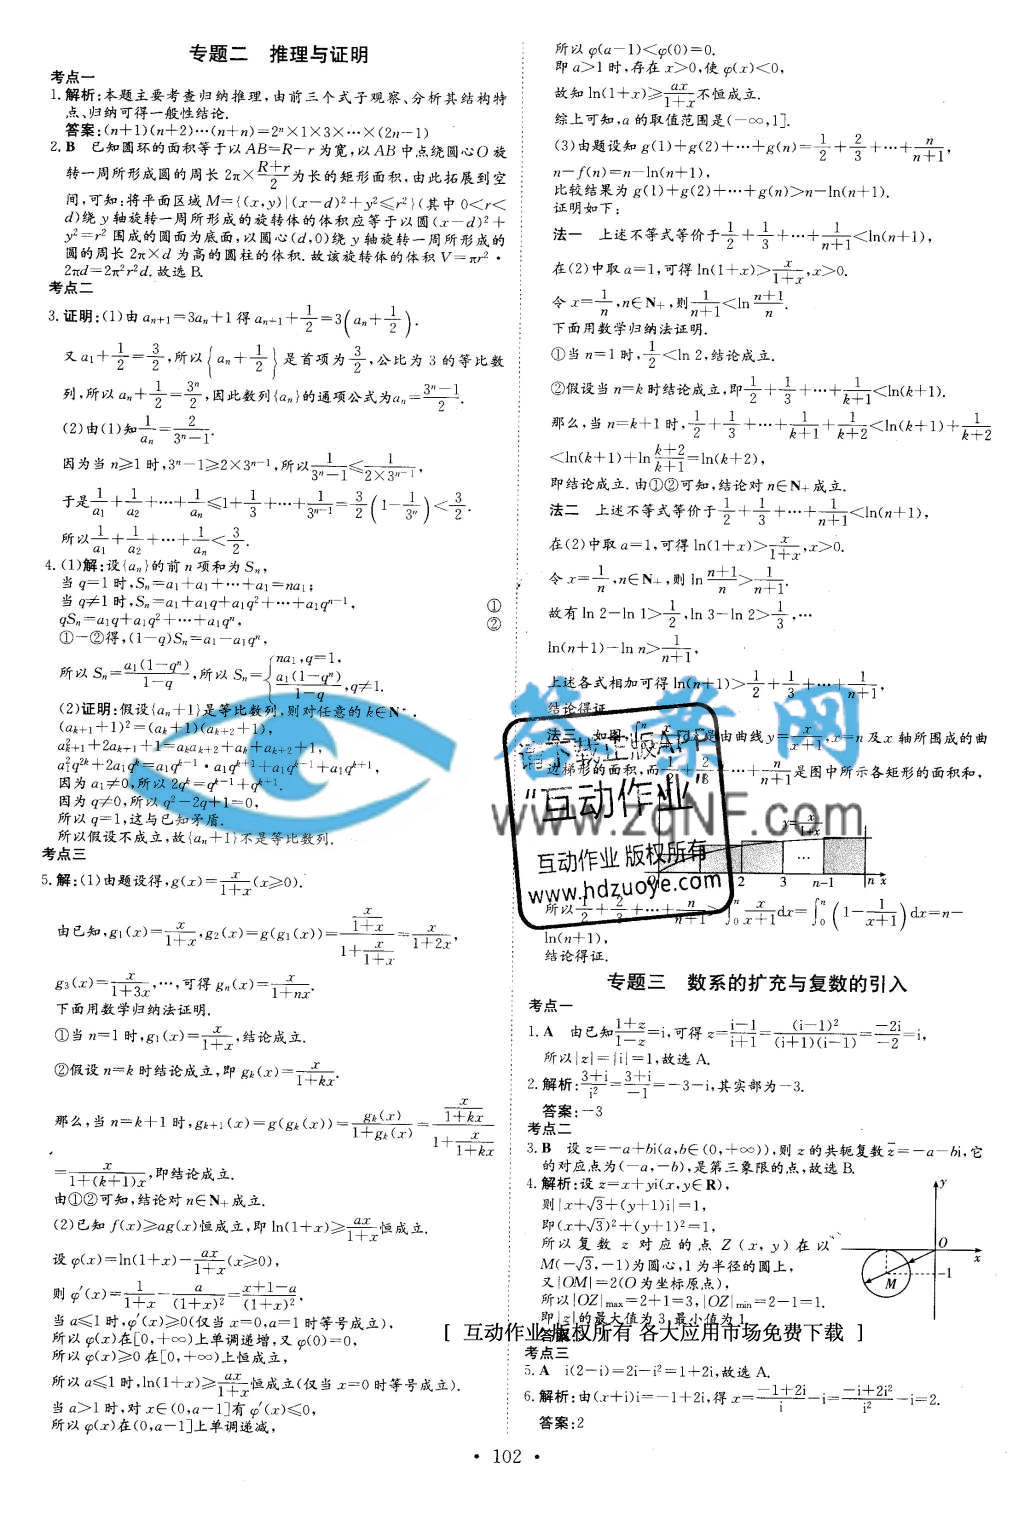 专题二 推理与证明
考点一
1.解析:本题主要考查归纳推理,由前三个式子观察、分析其结构特
点、归纳可得一般性结论.
答案:(n+1)(n+2)…(n+n)=2ⁿ×1×3×…×(2n-1)
2.B 已知圆环的面积等于以AB=R-r为宽,以AB中点绕圆心O旋
转一周所形成圆的周长2π×(R+r)/2为长的矩形面积,由此拓展到空
间,可知:将平面区域M={(x,y)|(x-d)²+y²≤r²}(其中0<r<
d)绕y轴旋转一周所形成的旋转体的体积应等于以圆(x-d)²+
y²=r²围成的圆面为底面,以圆心(d,0)绕y轴旋转一周所形成的
圆的周长2π×d为高的圆柱的体积.故该旋转体的体积V=πr²·
2πd=2π²r²d.故选B.
考点二
3.证明:(1)由aₙ₊₁=3aₙ+1得aₙ₊₁+1/2=3(aₙ+1/2).
又a₁+1/2=3/2,所以{aₙ+1/2}是首项为3/2,公比为3的等比数
列,所以aₙ+1/2=3ⁿ/2,因此数列{aₙ}的通项公式为aₙ=(3ⁿ-1)/2.
(2)由(1)知1/aₙ=2/(3ⁿ-1).
因为当n≥1时,3ⁿ-1≥2×3ⁿ⁻¹,所以1/(3ⁿ-1)≤1/(2×3ⁿ⁻¹),
于是1/a₁+1/a₂+…+1/aₙ≤1+1/3+…+1/3ⁿ⁻¹=3/2(1-1/3ⁿ)<3/2.
所以1/a₁+1/a₂+…+1/aₙ<3/2.
4.(1)解:设{aₙ}的前n项和为Sₙ,
当q=1时,Sₙ=a₁+a₁+…+a₁=na₁;
当q≠1时,Sₙ=a₁+a₁q+a₁q²+…+a₁qⁿ⁻¹, ①
qSₙ=a₁q+a₁q²+…+a₁qⁿ, ②
①-②得,(1-q)Sₙ=a₁-a₁qⁿ,
所以Sₙ=a₁(1-qⁿ)/(1-q),所以Sₙ={na₁,q=1, a₁(1-qⁿ)/(1-q),q≠1.
(2)证明:假设{aₙ+1}是等比数列,则对任意的k∈N*,
(aₖ₊₁+1)²=(aₖ+1)(aₖ₊₂+1),
a²ₖ₊₁+2aₖ₊₁+1=aₖaₖ₊₂+aₖ+aₖ₊₂+1,
a₁²q²ᵏ+2a₁qᵏ=a₁qᵏ⁻¹·a₁qᵏ⁺¹+a₁qᵏ⁻¹+a₁qᵏ⁺¹,
因为a₁≠0,所以2qᵏ=qᵏ⁻¹+qᵏ⁺¹.
因为q≠0,所以q²-2q+1=0,
所以q=1,这与已知矛盾.
所以假设不成立,故{aₙ+1}不是等比数列.
考点三
5.解:(1)由题设得,g(x)=x/(1+x)(x≥0).
由已知,g₁(x)=x/(1+x),g₂(x)=g(g₁(x))=(x/(1+x))/(1+x/(1+x))=x/(1+2x),
g₃(x)=x/(1+3x),…,可得gₙ(x)=x/(1+nx).
下面用数学归纳法证明.
①当n=1时,g₁(x)=x/(1+x),结论成立.
②假设n=k时结论成立,即gₖ(x)=x/(1+kx).
那么,当n=k+1时,gₖ₊₁(x)=g(gₖ(x))=gₖ(x)/(1+gₖ(x))=(x/(1+kx))/(1+x/(1+kx))
=x/(1+(k+1)x),即结论成立.
由①②可知,结论对n∈N₊成立.
(2)已知f(x)≥ag(x)恒成立,即ln(1+x)≥ax/(1+x)恒成立.
设φ(x)=ln(1+x)-ax/(1+x)(x≥0),
则φ′(x)=1/(1+x)-a/(1+x)²=(x+1-a)/(1+x)²,
当a≤1时,φ′(x)≥0(仅当x=0,a=1时等号成立),
所以φ(x)在[0,+∞)上单调递增,又φ(0)=0,
所以φ(x)≥0在[0,+∞)上恒成立,
所以a≤1时,ln(1+x)≥ax/(1+x)恒成立(仅当x=0时等号成立).
当a>1时,对x∈(0,a-1]有φ′(x)≤0,
所以φ(x)在(0,a-1]上单调递减,
所以φ(a-1)<φ(0)=0.
即a>1时,存在x>0,使φ(x)<0,
故知ln(1+x)≥ax/(1+x)不恒成立.
综上可知,a的取值范围是(-∞,1].
(3)由题设知g(1)+g(2)+…+g(n)=1/2+2/3+…+n/(n+1),
n-f(n)=n-ln(n+1),
比较结果为g(1)+g(2)+…+g(n)>n-ln(n+1).
证明如下:
法一 上述不等式等价于1/2+1/3+…+1/(n+1)<ln(n+1),
在(2)中取a=1,可得ln(1+x)>x/(1+x),x>0.
令x=1/n,n∈N₊,则1/(n+1)<ln (n+1)/n.
下面用数学归纳法证明.
①当n=1时,1/2<ln 2,结论成立.
②假设当n=k时结论成立,即1/2+1/3+…+1/(k+1)<ln(k+1).
那么,当n=k+1时,1/2+1/3+…+1/(k+1)+1/(k+2)<ln(k+1)+1/(k+2)
<ln(k+1)+ln (k+2)/(k+1)=ln(k+2),
即结论成立.由①②可知,结论对n∈N₊成立.
法二 上述不等式等价于1/2+1/3+…+1/(n+1)<ln(n+1),
在(2)中取a=1,可得ln(1+x)>x/(1+x),x>0.
令x=1/n,n∈N₊,则ln (n+1)/n>1/(n+1).
故有ln 2-ln 1>1/2,ln 3-ln 2>1/3,…
ln(n+1)-ln n>1/(n+1),
上述各式相加可得ln(n+1)>1/2+1/3+…+1/(n+1),
结论得证.
法三 如图,∫₀ⁿ 是由曲线y=x/(x+1),x=n及x轴所围成的曲
边梯形的面积,而1/2+2/3+…+n/(n+1)是图中所示各矩形的面积和,
y=x/(1+x)
O 2 3 … n-1 n x
所以1/2+2/3+…+n/(n+1)>∫₀ⁿ x/(x+1)dx=∫₀ⁿ(1-1/(x+1))dx=n-
ln(n+1),
结论得证.
专题三 数系的扩充与复数的引入
考点一
1.A 由已知(1+z)/(1-z)=i,可得z=(i-1)/(i+1)=(i-1)²/((i+1)(i-1))=-2i/-2=i,
所以|z|=|i|=1,故选A.
2.解析:(3+i)/i²=(3+i)/-1=-3-i,其实部为-3.
答案:-3
考点二
3.B 设z=-a+bi(a,b∈(0,+∞)),则z的共轭复数z̄=-a-bi,它
的对应点为(-a,-b),是第三象限的点,故选B.
4.解析:设z=x+yi(x,y∈R),
则|x+√3+(y+1)i|=1,
即(x+√3)²+(y+1)²=1,
所以复数z对应的点Z(x,y)在以
M(-√3,-1)为圆心,1为半径的圆上,
又|OM|=2(O为坐标原点),
所以|OZ|max=2+1=3,|OZ|min=2-1=1.
即|z|的最大值为3,最小值为1.
y O x M -1
考点三
5.A i(2-i)=2i-i²=1+2i,故选A.
6.解析:由(x+i)i=-1+2i,得x=(-1+2i)/i-i=(-i+2i²)/i²-i=2.
答案:2
• 102 •
答案网
www.zqNF.com
请下载正版APP
“互动作业”
互动作业 版权所有
www.hdzuoye.com
[ 互动作业 版权所有 各大应用市场免费下载 ]